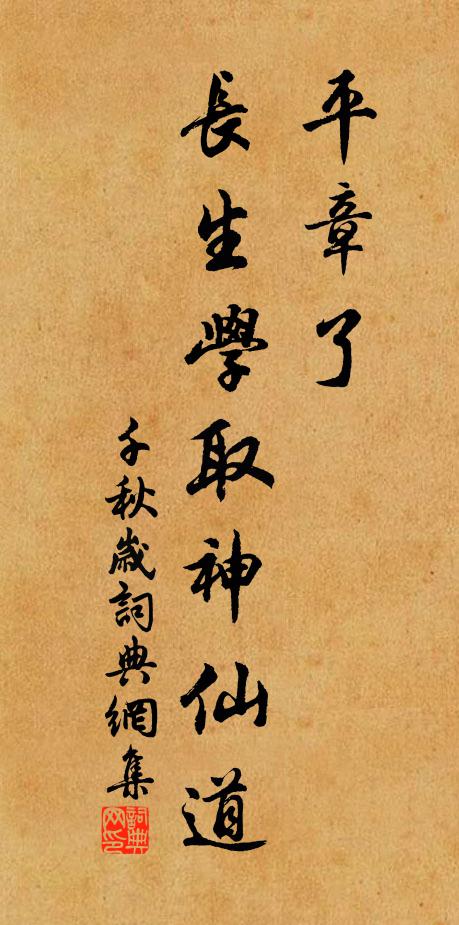 平章了
長生學取神仙道
千秋歲詞典網集
詞典网印